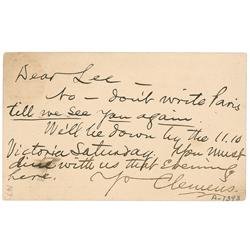 Dear Lee —
No — don't write Paris
till we see you again.
Will be down by the 11.10
Victoria Saturday. You must
dine with us that Evening
here. Yrs Clemens.
A-1393